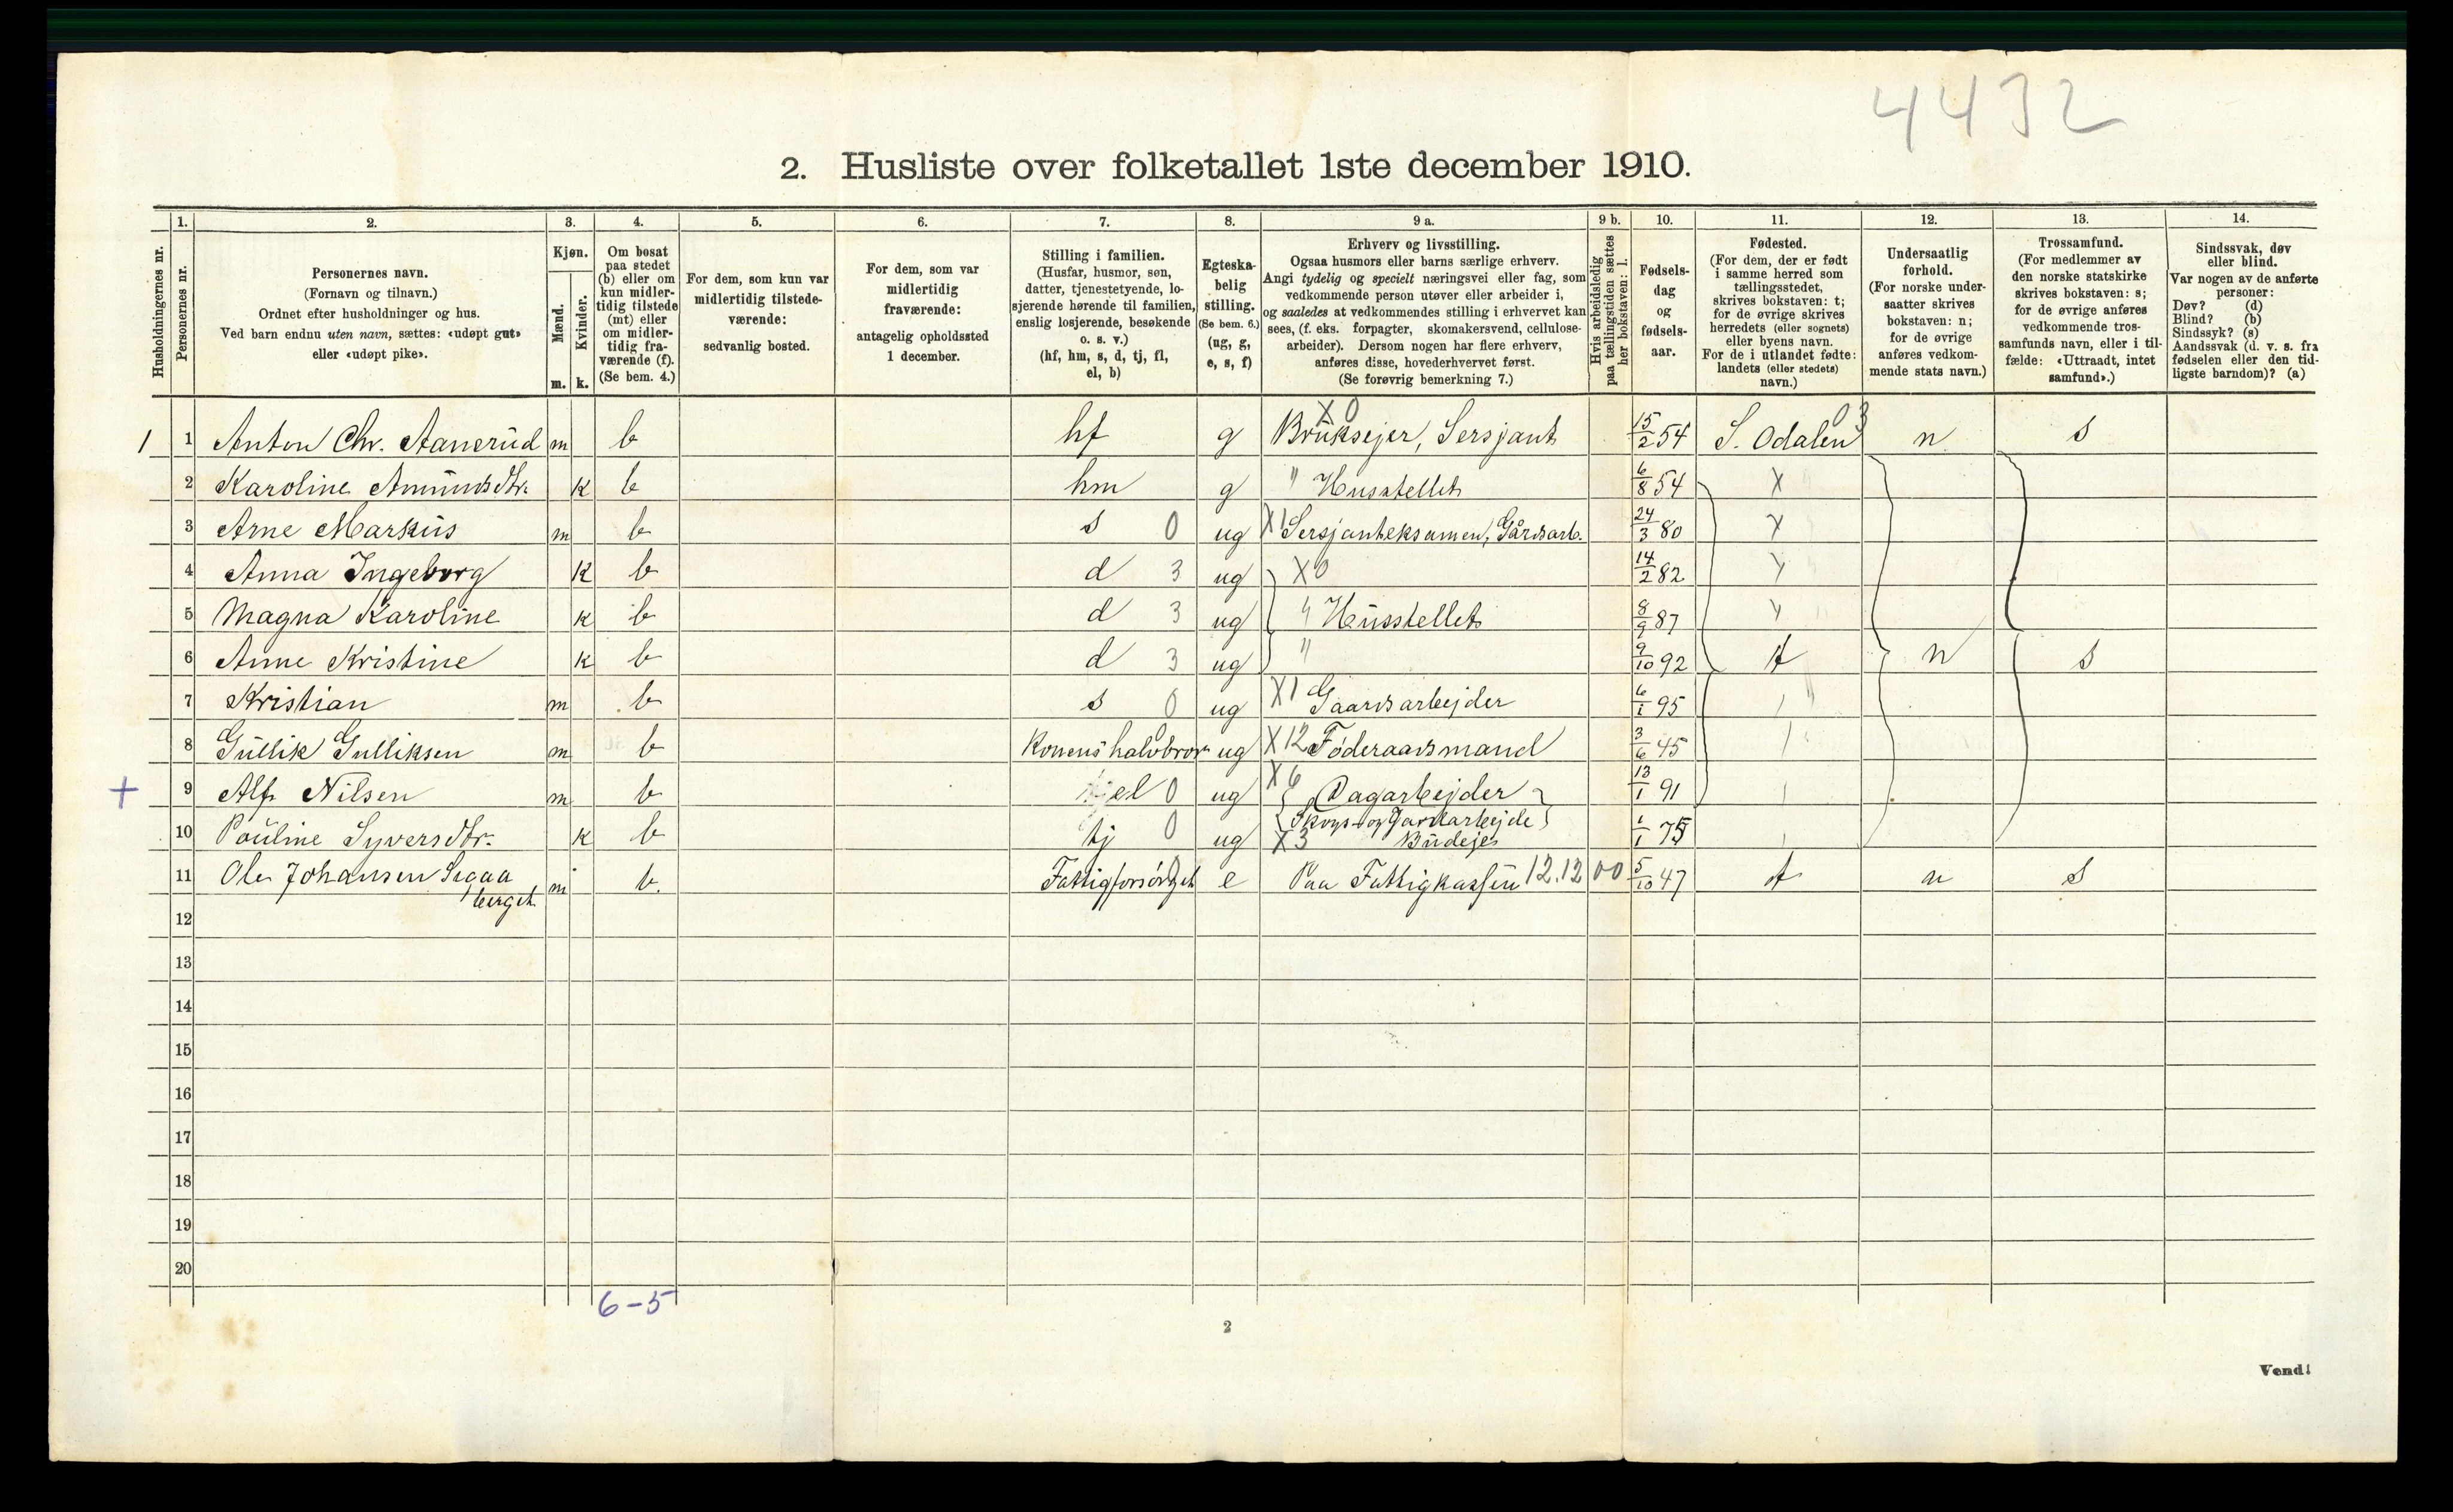 4432
2. Husliste over folketallet 1ste december 1910.
Husholdningernes nr.
1.
Personernes nr.
2.
Personernes navn.
(Fornavn og tilnavn.)
Ordnet efter husholdninger og hus.
Ved barn endnu uten navn, sættes: «udøpt gut»
eller «udøpt pike».
3.
Kjøn.
Mænd.
Kvinder.
m. k.
4.
Om bosat
paa stedet
(b) eller om
kun midler-
tidig tilstede
(mt) eller
om midler-
tidig fra-
værende (f).
(Se bem. 4.)
5.
For dem, som kun var
midlertidig tilstede-
værende:
sedvanlig bosted.
6.
For dem, som var
midlertidig
fraværende:
antagelig opholdssted
1 december.
7.
Stilling i familien.
(Husfar, husmor, søn,
datter, tjenestetyende, lo-
sjerende hørende til familien,
enslig losjerende, besøkende
o. s. v.)
(hf, hm, s, d, tj, fl,
el, b)
8.
Egteska-
belig
stilling.
(Se bem. 6.)
(ug, g,
e, s, f)
9 a.
Erhverv og livsstilling.
Ogsaa husmors eller barns særlige erhverv.
Angi tydelig og specielt næringsvei eller fag, som
vedkommende person utøver eller arbeider i,
og saaledes at vedkommendes stilling i erhvervet kan
sees, (f. eks. forpagter, skomakersvend, cellulose-
arbeider). Dersom nogen har flere erhverv,
anføres disse, hovederhvervet først.
(Se forøvrig bemerkning 7.)
9 b.
Hvis arbeidsledig
paa tællingstiden sættes
her bokstaven: l.
10.
Fødsels-
dag
og
fødsels-
aar.
11.
Fødested.
(For dem, der er født
i samme herred som
tællingsstedet,
skrives bokstaven: t;
for de øvrige skrives
herredets (eller sognets)
eller byens navn.
For de i utlandet fødte:
landets (eller stedets)
navn.)
12.
Undersaatlig
forhold.
(For norske under-
saatter skrives
bokstaven: n;
for de øvrige
anføres vedkom-
mende stats navn.)
13.
Trossamfund.
(For medlemmer av
den norske statskirke
skrives bokstaven: s;
for de øvrige anføres
vedkommende tros-
samfunds navn, eller i til-
fælde: «Uttraadt, intet
samfund».)
14.
Sindssvak, døv
eller blind.
Var nogen av de anførte
personer:
Døv? (d)
Blind? (b)
Sindssyk? (s)
Aandssvak (d. v. s. fra
fødselen eller den tid-
ligste barndom)? (a)
1 1 Anton Chr. Aanerud m b hf g X0 Bruksejer, Sersjant 15/2 54 S. Odalen 03 n s
2 Karoline Amundsdtr. k b hm g " Husstellet 6/8 54 X
3 Arne Markus m b s 0 ug X1 Sersjanteksamen, Gårdsarb. 24/3 80 X
4 Anna Ingeborg k b d 3 ug X0 14/2 82
5 Magna Karoline k b d 3 ug " Husstellet 8/9 87
6 Anne Kristine k b d 3 ug " 9/10 92 t n s
7 Kristian m b s 0 ug X1 Gaardsarbejder 6/1 95
8 Gullik Gulliksen m b Konens halvbror ug X12 Føderaadsmand 3/6 45
+ 9 Alf Nilsen m b el 0 ug X6 Dagarbejder 13/1 91
Skogs- og Gardarbejde
10 Pauline Syversdtr. k b tj 0 ug X3 Budeje 1/1 75
11 Ole Johansen m b Fattigforsörget e Paa Fattigkassen 12.12 00 5/10 47 t n s
berget
12
13
14
15
16
17
18
19
20
6-5
2
Vend!